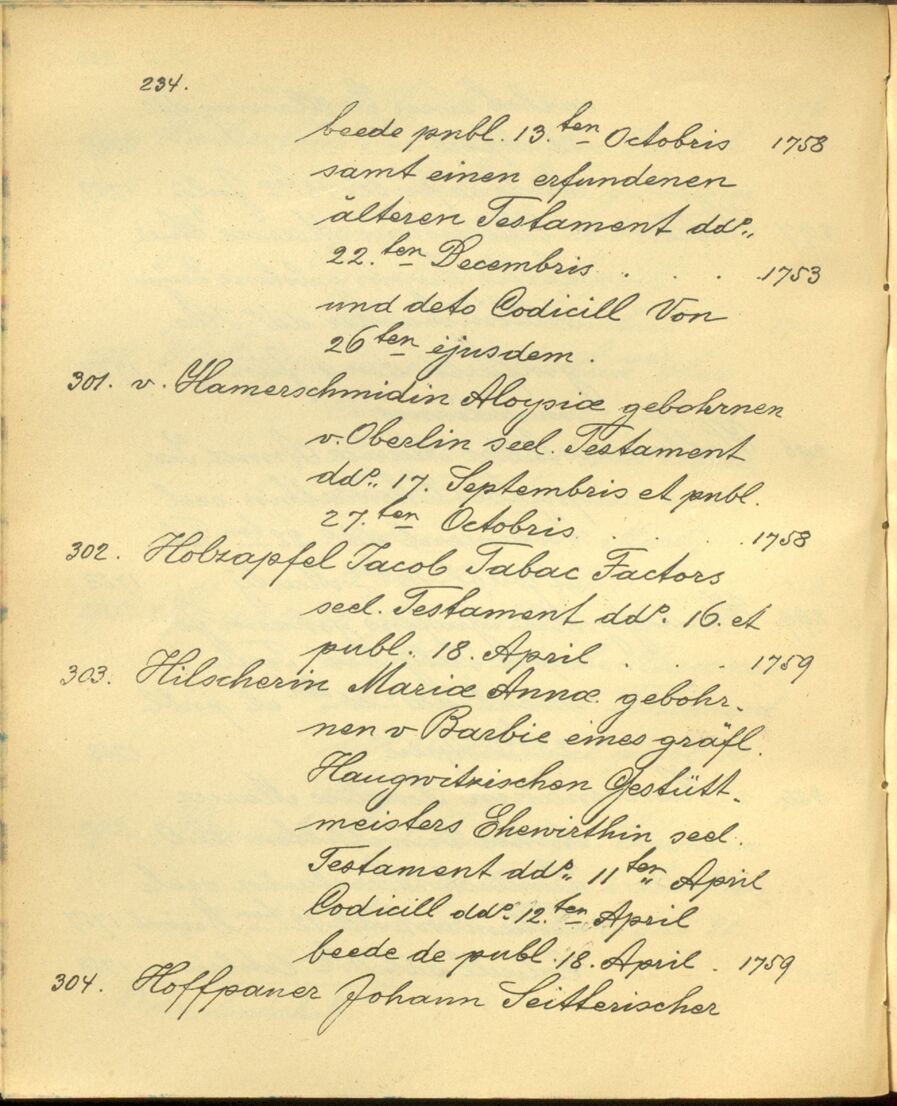 234.
beede publ. 13.ten Octobris 1758
samt einen erfundenen
älteren Testament ddo„
22.ten Decembris . . . .1753
und deto Codicill Von
26ten ejusdem.
301. v. Hamerschmidin Aloysiæ gebohrnen
v. Oberlin seel. Testament
ddo„ 17. Septembris et publ.
27.ten Octobris . . . 1758
302. Holzapfel Jacob Tabac Factors
seel. Testament ddo. 16. et
publ. 18. April . . . 1759
303. Hilscherin Mariæ Annæ gebohr-
nen v Barbie eines gräfl.
Haugwitzischen Gestütt-
meisters Ehewirthin seel.
Testament ddo„ 11ten April
Codicill ddo. 12.ten April
beede de publ. 18. April . 1759
304. Hoffpauer Johann Seitterischer